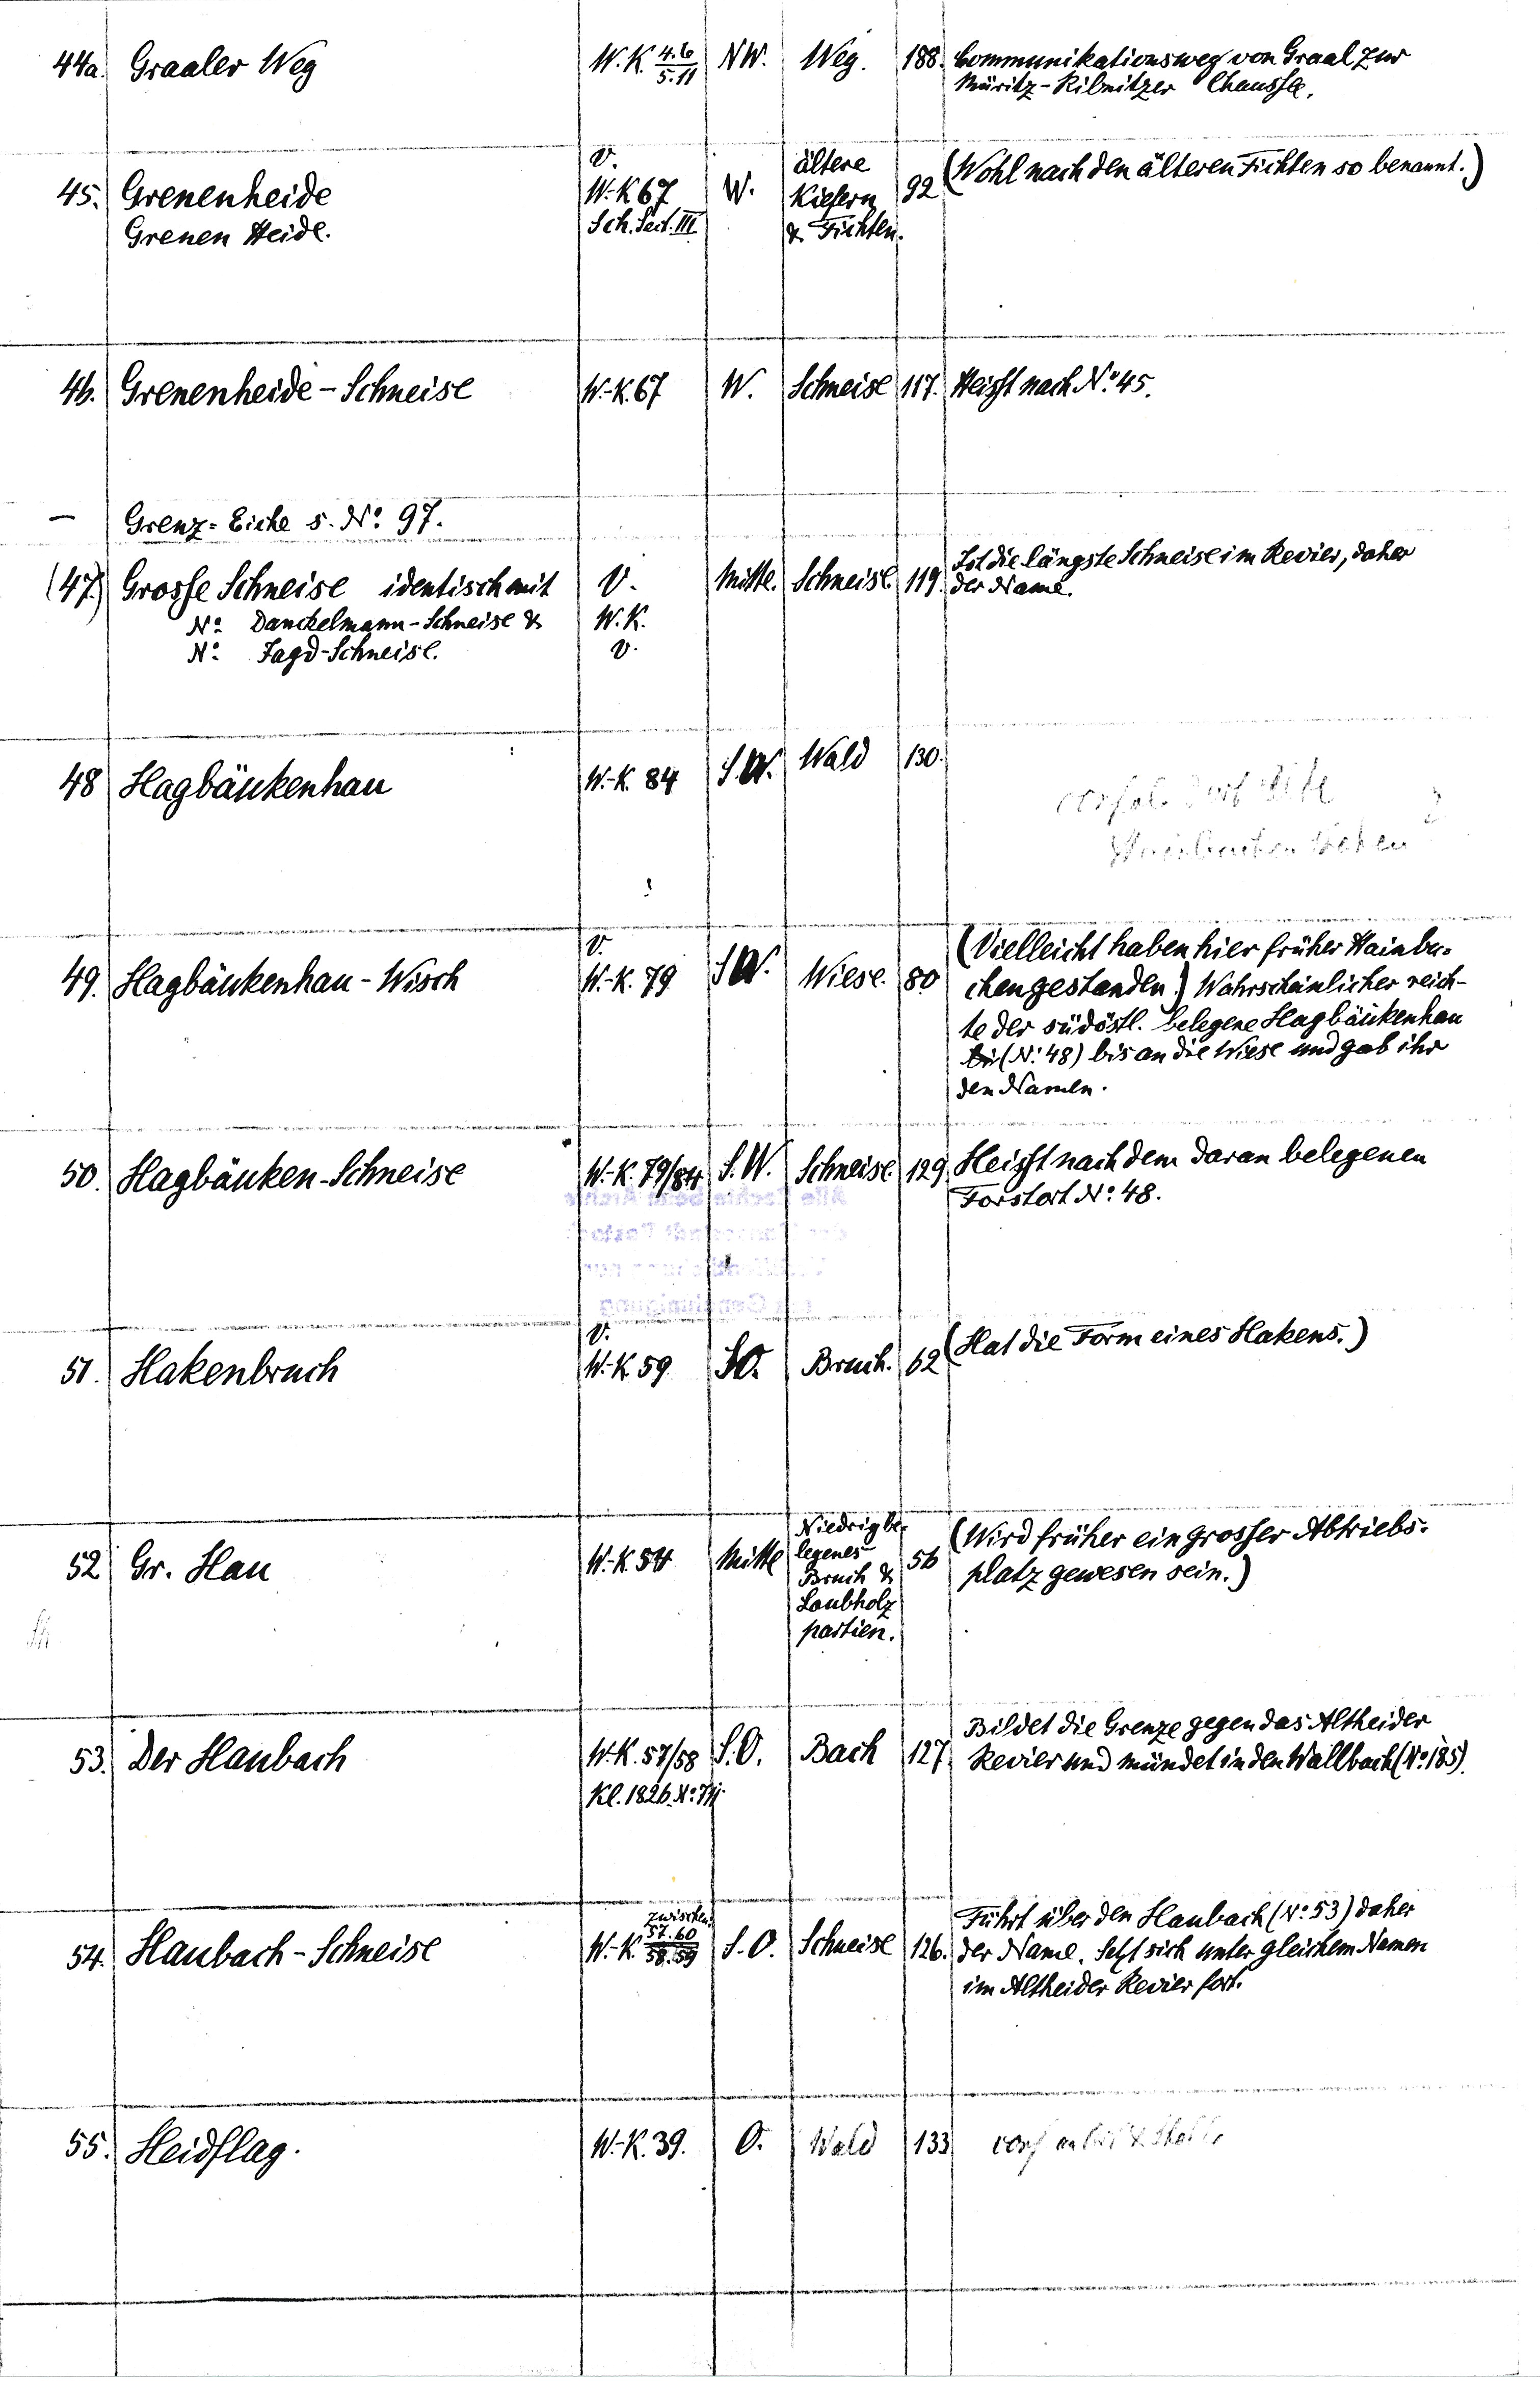 44a. Graaler Weg W.K. 4.6/5.11 NW. Weg. 188. Communikationsweg von Graal zur
Müritz-Ribnitzer Chaussee.
45. Grenenheide V. W.-K 67 W. ältere Kiefern 92 (Wohl nach den älteren Fichten so benannt.)
Grenen Heide. Sch. Sect. III & Fichten.
46. Grenenheide-Schneise W.-K. 67 W. Schneise 117. Heisst nach No. 45.
— Grenz-Eiche s. No. 97.
(47.) Grosse Schneise identisch mit V. Mitte. Schneise. 119. Ist die längste Schneise im Revier, daher
der Name.
No. Danckelmann-Schneise & W.K.
No. Jagd-Schneise. V.
48 Hagbäukenhau W.-K. 84 S.W. Wald 130.
49. Hagbäukenhau-Wisch V. W.-K. 79 SW. Wiese. 80 (Vielleicht haben hier früher Hainbu-
chen gestanden.) Wahrscheinlicher reich-
te der südöstl. belegene Hagbäukenhau
(No. 48) bis an die Wiese und gab ihr
den Namen.
50. Hagbäuken-Schneise W.-K. 79/84 S.W. Schneise. 129. Heisst nach dem daran belegenen
Forstort No. 48.
51. Hakenbruch V. W.-K. 59 SO. Bruch. 62 (Hat die Form eines Hakens.)
52 Gr. Hau W.-K. 54 Mitte Niedrig be-
legenes
Bruch &
Laubholz
partien. 56 (Wird früher ein grosser Abtriebs-
platz gewesen sein.)
53. Der Haubach W.-K. 57/58 S.O. Bach 127. Bildet die Grenze gegen das Altheider
Revier und mündet in den Wallbach (No. 185).
Kl. 1826. No.
54. Haubach-Schneise W.-K. zwischen 57.60/58.59 S.O. Schneise 126. Führt über den Haubach (No. 53) daher
der Name. Setzt sich unter gleichem Namen
im Altheider Revier fort.
55. Heidflag. W.-K. 39. O. Wald 133